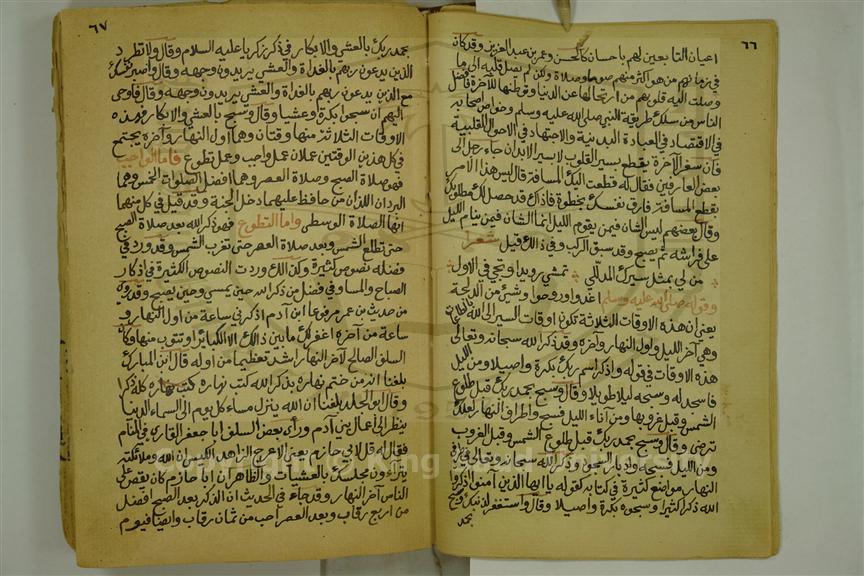 ٦٦
اعيان التابعين لهم باحسان كالحسن وعمر بن عبد العزيز وقد كان
في زمانهم من هو اكثر منهم صوما وصلاة ولكن لم يصل قلبه الى ما
وصلت اليه قلوبهم من ارتحالها عن الدنيا وتوطنها للآخرة فافضل
الناس من سلك طريقة النبي صلى الله عليه وسلم وخواص اصحابه
في الاقتصاد في العبادة البدنية والاجتهاد في الاحوال القلبية
فان سفر الآخرة يقطع بسير القلوب لا بسير الابدان جاء رجل الى
بعض العارفين فقال له قطعت اليك المسافة قال ليس هذا الامر
بقطع المسافة فارق نفسك بخطوة فاذا بك قد حصل لك مطلوبك
وقال بعضهم ليس الشان فيمن يقوم الليل انما الشان فيمن ينام الليل
على فراشه ثم يصبح وقد سبق الركب وفي ذلك قيل شعرا
من لي بمثل سيرك المدلل تمشي رويدا وتجي في الاول
وقوله صلى الله عليه وسلم اغدوا وروحوا وشيء من الدلجة
يعني ان هذه الاوقات الثلاثة تكون اوقات السير الى الله بالطاعات
وهي آخر الليل واول النهار وآخره وقد ذكر الله سبحانه وتعالى
هذه الاوقات في قوله واذكر اسم ربك بكرة واصيلا ومن الليل
فاسجد له وسبحه ليلا طويلا وقال وسبح بحمد ربك قبل طلوع
الشمس وقبل غروبها ومن آناء الليل فسبح واطراف النهار لعلك
ترضى وقال وسبح بحمد ربك قبل طلوع الشمس وقبل الغروب
ومن الليل فسبحه وادبار السجود وذكر الله سبحانه وتعالى في طرفي
النهار مواضع كثيرة في كتابه كقوله يا ايها الذين آمنوا اذكروا
الله ذكرا كثيرا وسبحوه بكرة واصيلا وقال واستغفر لذنبك وسبح
بحمد
٦٧
بحمد ربك بالعشي والابكار في ذكر زكريا عليه السلام وقال ولا تطرد
الذين يدعون ربهم بالغداة والعشي يريدون وجهه وقال واصبر نفسك
مع الذين يدعون ربهم بالغداة والعشي يريدون وجهه وقال فاوحى
اليهم ان سبحوا بكرة وعشيا وقال وسبح بالعشي والابكار فهذه
الاوقات الثلاثة منها وقتان وهما اول النهار وآخره يجتمع
في كل هذين الوقتين عملان عمل واجب وعمل تطوع فاما الواجب
فهو صلاة الصبح وصلاة العصر وهما افضل الصلوات الخمس وهما
البردان اللذان من حافظ عليهما دخل الجنة وقد قيل في كل منهما
انها الصلاة الوسطى واما التطوع فهو ذكر الله بعد صلاة الصبح
حتى تطلع الشمس وبعد صلاة العصر حتى تغرب الشمس وقد ورد في
فضله نصوص كثيرة وكذلك وردت النصوص الكثيرة في اذكار
الصباح والمساء وفي فضل من ذكر الله حين يمسي وحين يصبح وقد روي
من حديث بن عمر مرفوعا ابن آدم اذكرني ساعة من اول النهار و
ساعة من آخره اغفر لك ما بين ذلك الا الكبائر او تتوب منها وكان
السلف الصالح لآخر النهار اشد تعظيما من اوله قال ابن المبارك
بلغنا انه من ختم نهاره بذكر الله كتب نهاره كله ذكرا
وقال ابو الجلد بلغنا ان الله ينزل مساء كل يوم الى السماء الدنيا
ينظر الى اعمال بني آدم ورأى بعض السلف ابا جعفر القاري في المنام
فقال له قل لابي حازم يعني الاعرج الزاهد الكيس ان الله وملائكته
يتراءون مجلسك بالعشيات والظاهر ان ابا حازم كان يقص على
الناس آخر النهار وقد جاء في الحديث ان الذكر بعد الصبح افضل
من اربع رقاب وبعد العصر احب من ثمان رقاب وايضا فيوم